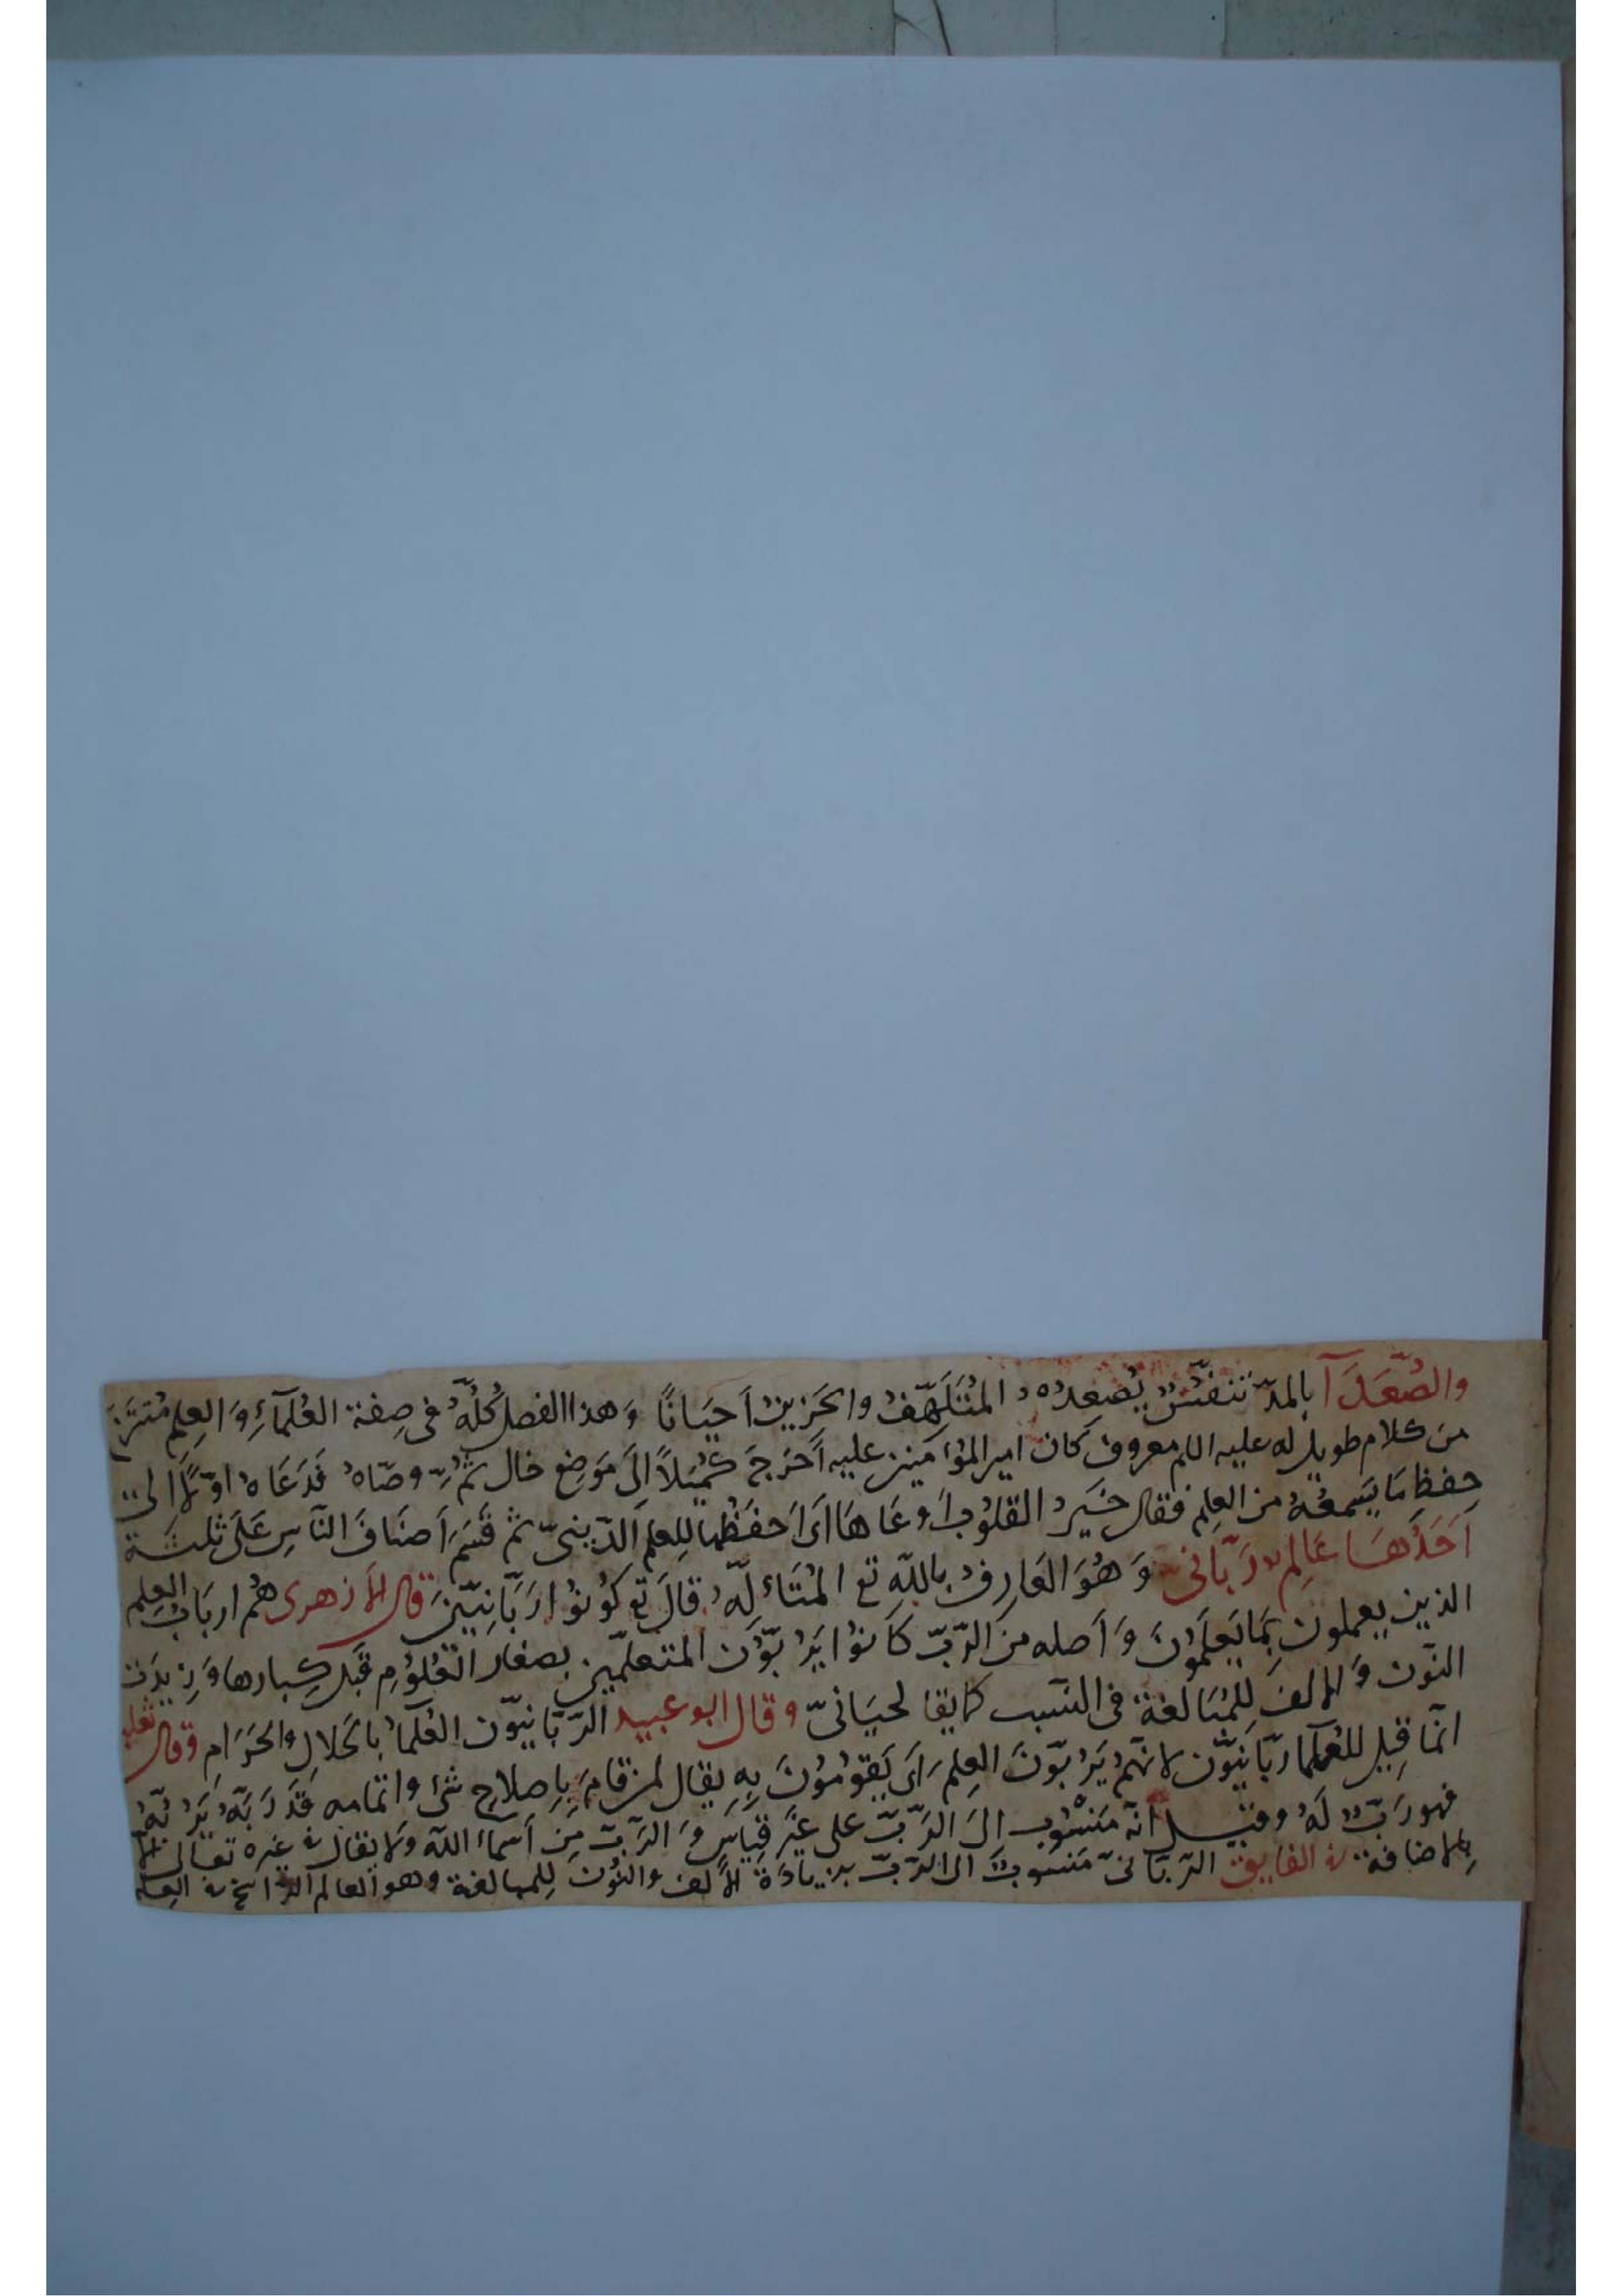 والصُّعَدَآ بالمدّ تنفّسٌ يُصَعِدُه المُتَلَهِّفُ والحَزِينُ أحيَانًا وَهذا الفصل كُلُّهُ فى صِفة العُلمآءِ وَ العِلِم
من كلام طويل له عليه اللم معروف كان امير المؤامنين عليه أخرَجَ كُميَلاً إلىَ مَوضِع خال ثُمّ وصّاهُ فَدَعَاهُ اوّلًا الى
حِفظِ مَا يَسِمعُهُ من العِلِم فقال خَيرُ القلوُب أوعَاهَا اىَ أحفَظُها لِلعِلم الدّينىّ ثم قَسَمَ أصنَافَ النّاسِ عَلىَ ثلثة
أحَدُهَا عَالِمٌ رَبّانىّ وَهُوَ العَارِفُ بالله تع المُتَألِّهُ قالَ تع كوُنوُا رَبّانِيّينَ قال الأزهرى هُم اربَابُ العِلم
الذين يعملون بَمَا يَعلَموُنَ وَ أصله من الرّبّ كانوُا يَرُبّوُن المتعلّمين بصغار العُلوُمِ قبَل كِبارها وَ زِيدَت
النوّن وَ الالف لِلمُبَالغة فى النّسب كما يقا لحيَانىّ وقال ابو عبيد الرّبّانيّون العُلَمآ بالحَلالِ والحَرَامِ وقال ثعلب
انّما قِيل للعُلمآ ربّانيّون لانّهم يَرُبّوّنَ العِلِمَ اىَ يَقوُموُنَ بِهِ يقال لمن قامَ بِاِصلاحِ شئ واتمامه قَد رَبّهُ يَرُبّهُ
فهو رَبّ لَهُ وقيل انّه مَنسوُب الىَ الرّبّ على غَير قيَاسٍ وَ الرَبّ مِن أسمآء اللّه وَلا يقال فى غيره تعَالى الا
بِالاضافة فى الفايق الرّبّانىّ مَنسوُبٌ الى الرّبّ بزيادَة الألف والنّوُن لِلمبالغة وهو العالم الرّاسخ فى العِلم